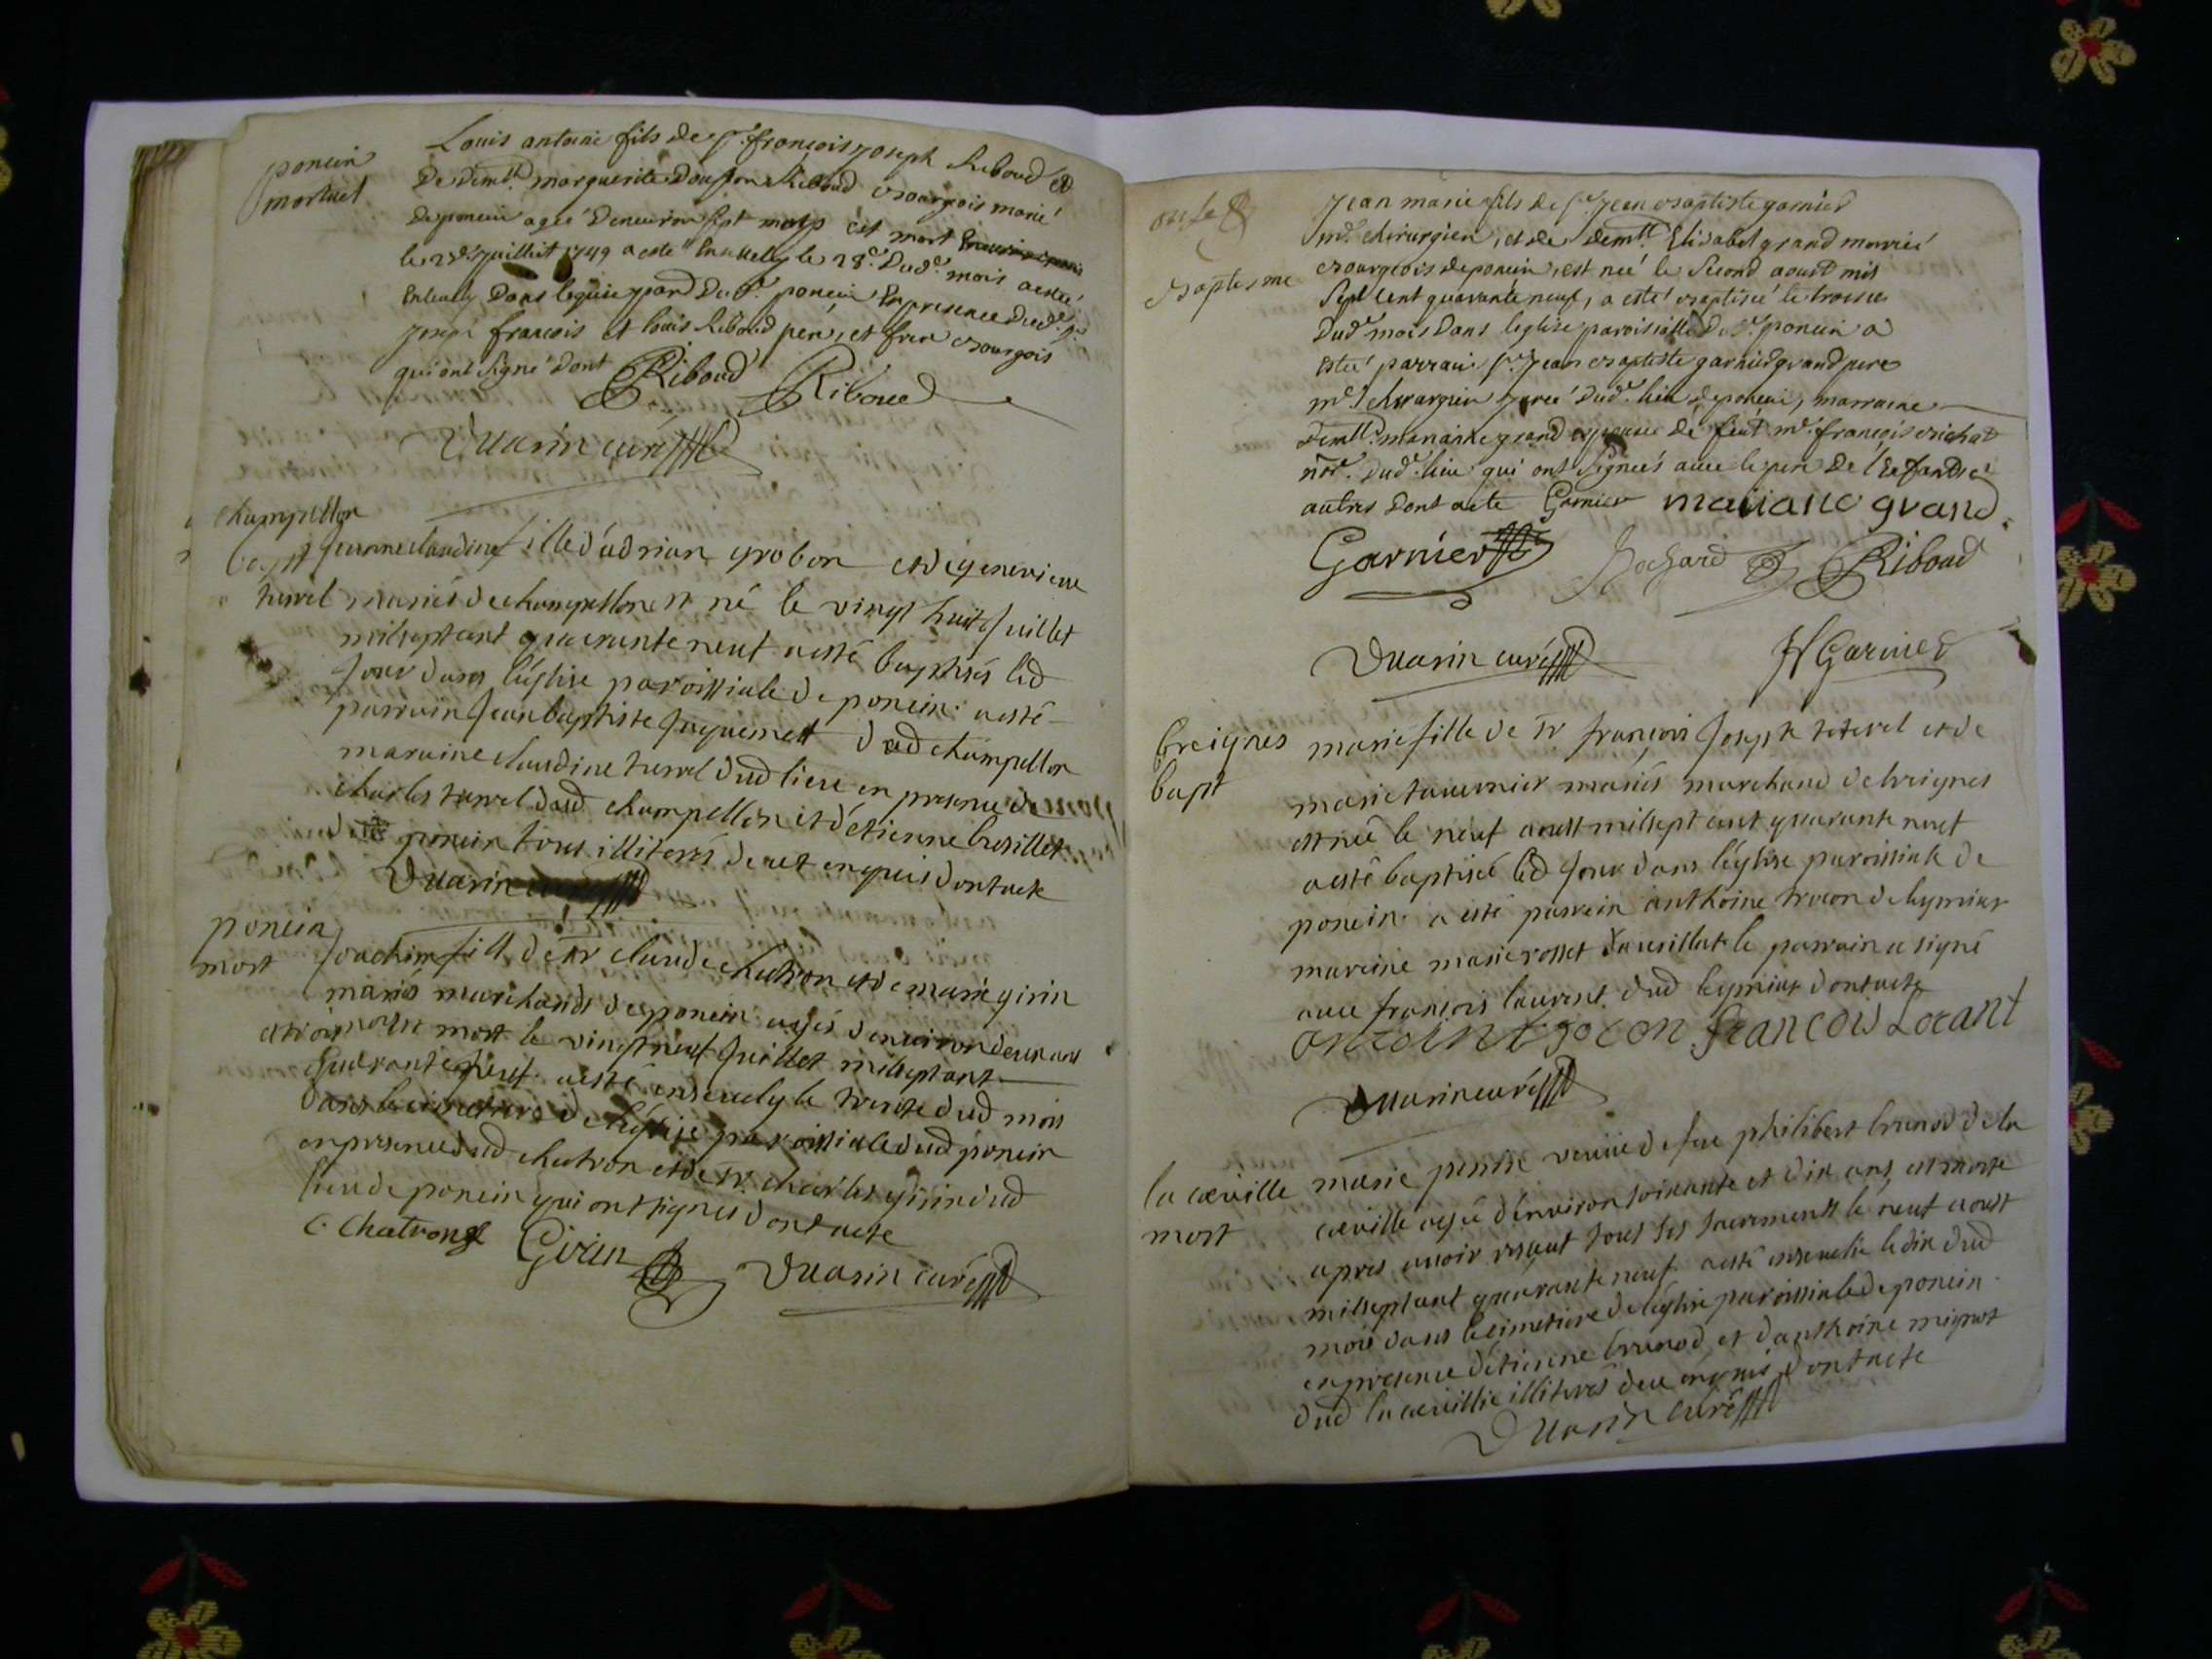 poncin
mortuel
Louis antoine fils de sr. francois joseph Riboud et
De demlle. marguerite Riboud bourgois marié
de poncin agée denviron sept moys est mort
le juillet 1749 a esté Ensevely le 28e. Dud. mois a esté
Ensevely Dans leglise parr. De poncin En presence dud. sr.
joseph francois et louis Riboud peré, et frere bourgois
qui ont signé Dont
Riboud Riboud
Duarin curé
champellon
bapt
jeanne claudine fille d'adrian grobon et de genevieve
turrel mariés de champellon est né le vingt huit juillet
milsept cent quarante neuf a esté baptisés led
jour dans l'église paroissiale de poncin. a esté
parrain jean baptiste dud champellon
maraine claudine turrel dud lieu en presence de
charles turrel dud champellon et d'étienne brusillet
de poncin tous illiterés de cet enquis dont acte
Duarin curé
poncin
mort
joachim fils de sr claude chatron et de marie girin
mariés marchands de poncin agés d'environ deux ans
et trois mois est mort le vingt neuf juillet milsept cent
quarante neuf. a esté ensevely le trente dud mois
dans le cimetiere de l'église paroissiale dud poncin
en presence dud chatron et de sr. charles girin dud
lieu de poncin qui ont signés dont acte
C Chatron Girin Duarin curé
baptesme
Jean marie fils de sr. Jean baptiste garnier
mr. chirurgien, et de demlle. Elisabet grand marriés
bourgeois de poncin, est neé le second aoust mil
sept cent quarante neuf, a esté baptiseé le troisie
dud. mois Dans leglise paroissialle De poncin a
esteé parrain sr. Jean baptiste garnier grand pere
mr. chirurgien jureé dud. lieu de poncin, marraine
demlle. marianne grand epouse de feut mr. françois
notr. dud. lieu qui ont signeés avec le pere De l'Enfand et
autres dont acte Garnier mariane grand.
Garnier Riboud
Duarin curé Garnier
breignes
bapt
marie fille de sr françois joseph et de
marie tavernier mariés marchand de breignes
est née le neuf aoust milsept cent quarante neuf
a esté baptisée led jour dans l'église paroissiale de
poncin. a esté parrain anthoine de leymiat
maraine marie rosset le parrain a signé
avec françois laurent dud leymiat dont acte
francois Lorant
Duarin curé
la cueuille
mort
marie veuve de feu philibert brunod de la
cueuille agée d'environ soixante et dix ans, est morte
apres avoir reçeut tous ses sacrements le neuf aoust
milsept cent quarante neuf. a esté ensevelie le dix dud
mois dans le cimetiere de l'église paroissiale de poncin.
en presence d'étienne brunod et d'anthoine mignot
dud la cueuillie illiterés de ce enquis dont acte
Duarin curé